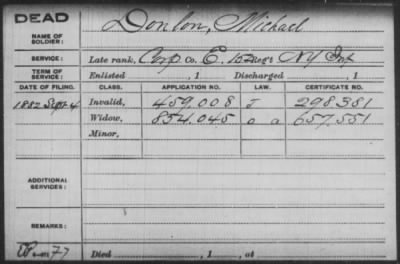 DEAD
NAME OF SOLDIER: Donlon, Michael
SERVICE: Late rank, Corp Co. E, 152 Reg't NY Inf
TERM OF SERVICE: Enlisted , 1 Discharged , 1
DATE OF FILING. CLASS. APPLICATION NO. LAW. CERTIFICATE NO.
1882 Sept 4 Invalid, 459.008 J 298.381
Widow, 854.045 a a 657.551
Minor,
ADDITIONAL SERVICES:
REMARKS:
Died , 1 , at